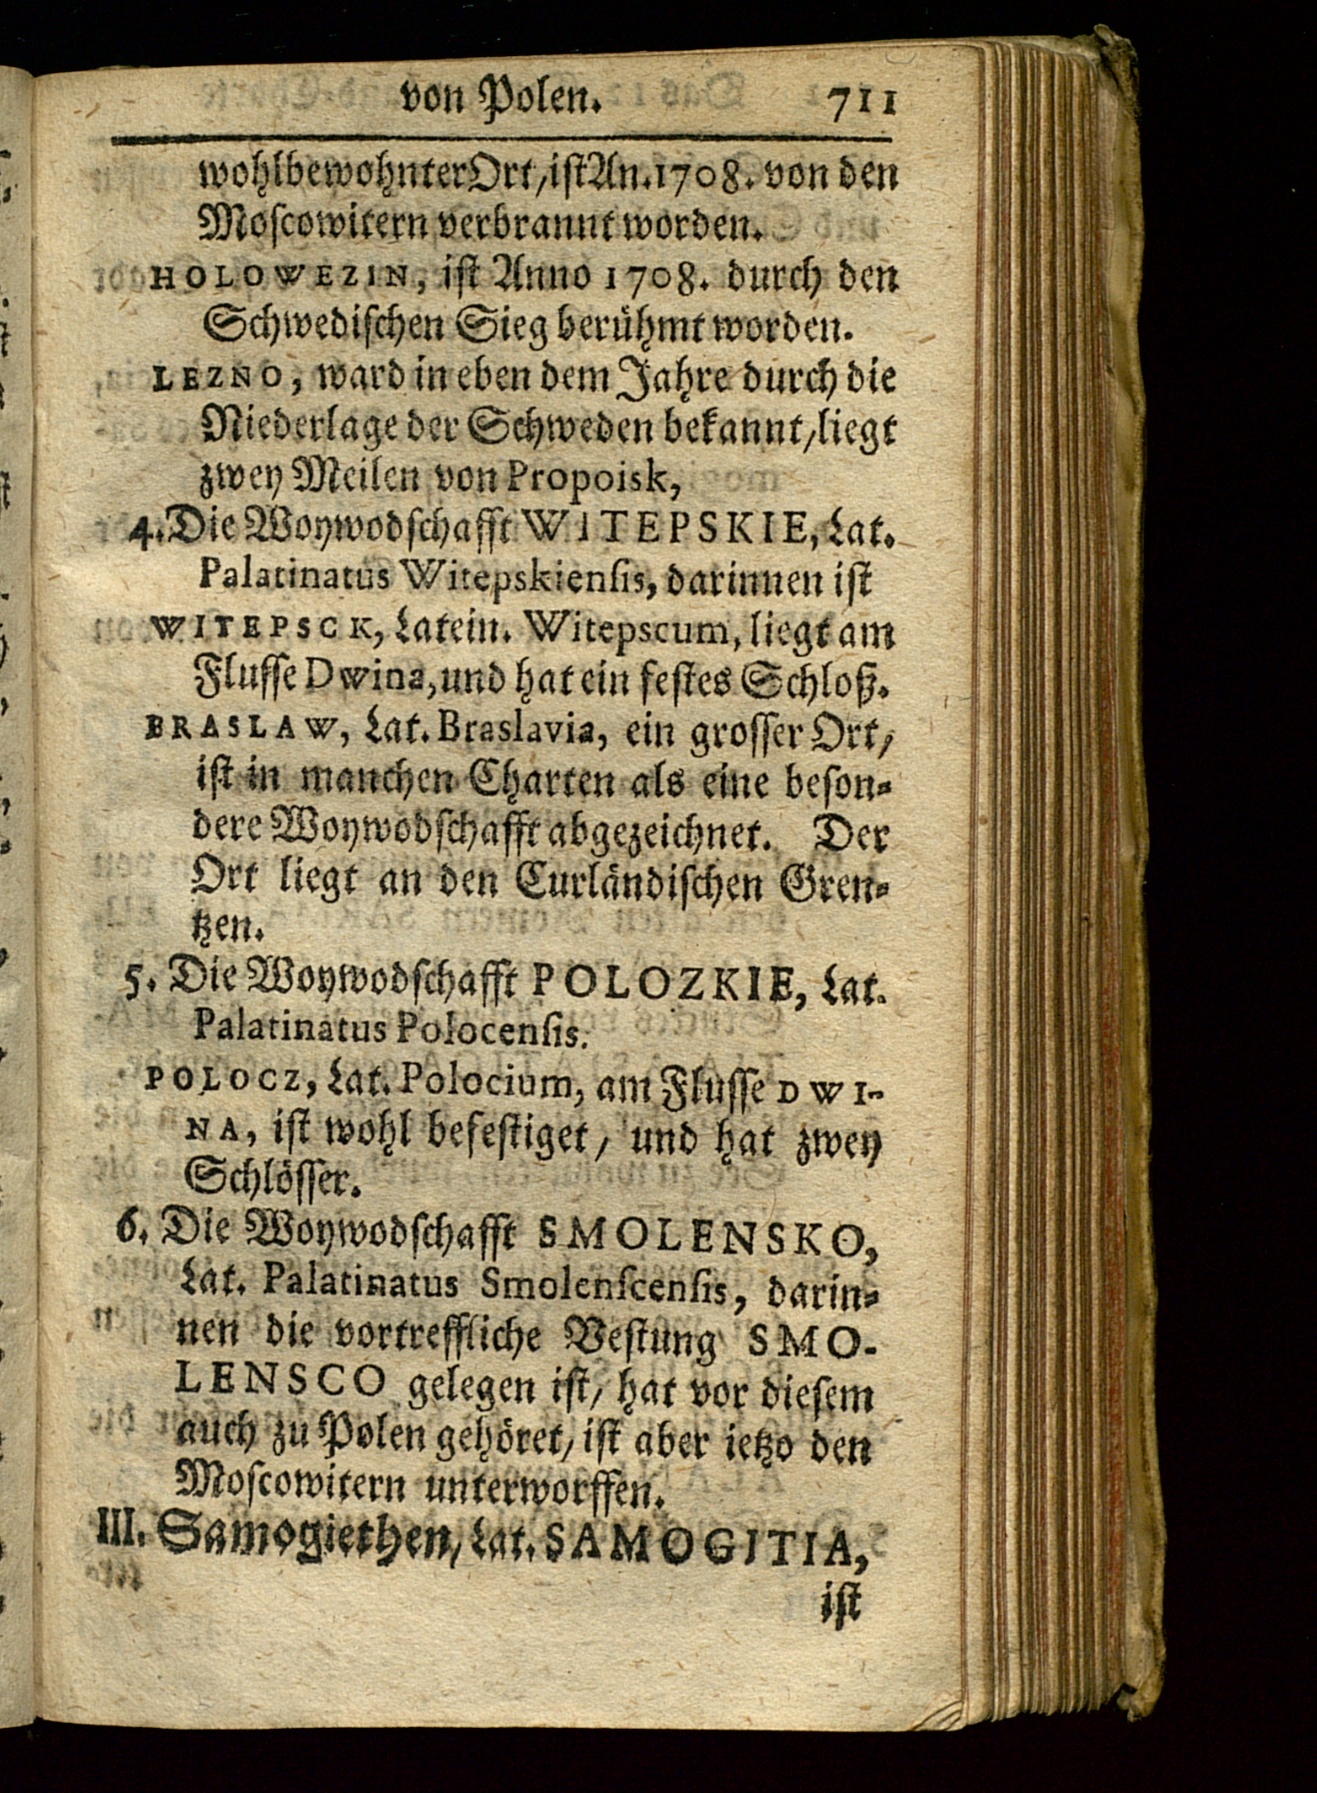 von Polen. 711
wohlbewohnter Ort, ist An. 1708. von den
Moscowitern verbrannt worden.
HOLOWEZIN, ist Anno 1708. durch den
Schwedischen Sieg berühmt worden.
LEZNO, ward in eben dem Jahre durch die
Niederlage der Schweden bekannt, liegt
zwey Meilen von Propoisk,
4. Die Woywodschafft WITEPSKIE, Lat.
Palatinatus Witepskiensis, darinnen ist
WITEPSCK, Latein. Witepscum, liegt am
Flusse Dwina, und hat ein festes Schloß.
BRASLAW, Lat. Braslavia, ein grosser Ort,
ist in manchen Charten als eine beson-
dere Woywodschafft abgezeichnet. Der
Ort liegt an den Curländischen Gren-
tzen.
5. Die Woywodschafft POLOZKIE, Lat.
Palatinatus Polocensis.
POLOCZ, Lat. Polocium, am Flusse DWI-
NA, ist wohl befestiget, und hat zwey
Schlösser.
6. Die Woywodschafft SMOLENSKO,
Lat. Palatinatus Smolenscensis, darin-
nen die vortreffliche Vestung SMO-
LENSCO gelegen ist, hat vor diesem
auch zu Polen gehöret, ist aber ietzo den
Moscowitern unterworffen.
III. Samogiethen, Lat. SAMOGITIA,
ist